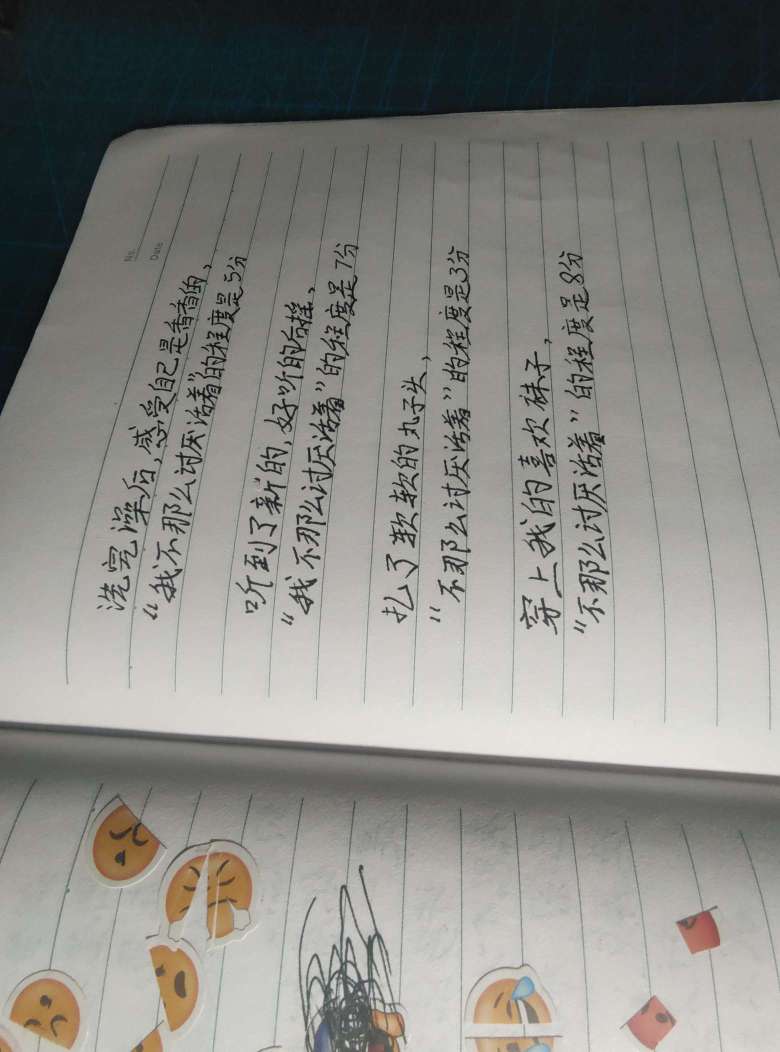 No.
Date
洗完澡后,感受自己是香香的,
“我不那么讨厌活着”的程度是5分
听到了新的,好听的后摇,
“我不那么讨厌活着”的程度是7分
扎了软软的丸子头,
“不那么讨厌活着”的程度是3分
穿上我的喜欢袜子,
“不那么讨厌活着”的程度是8分